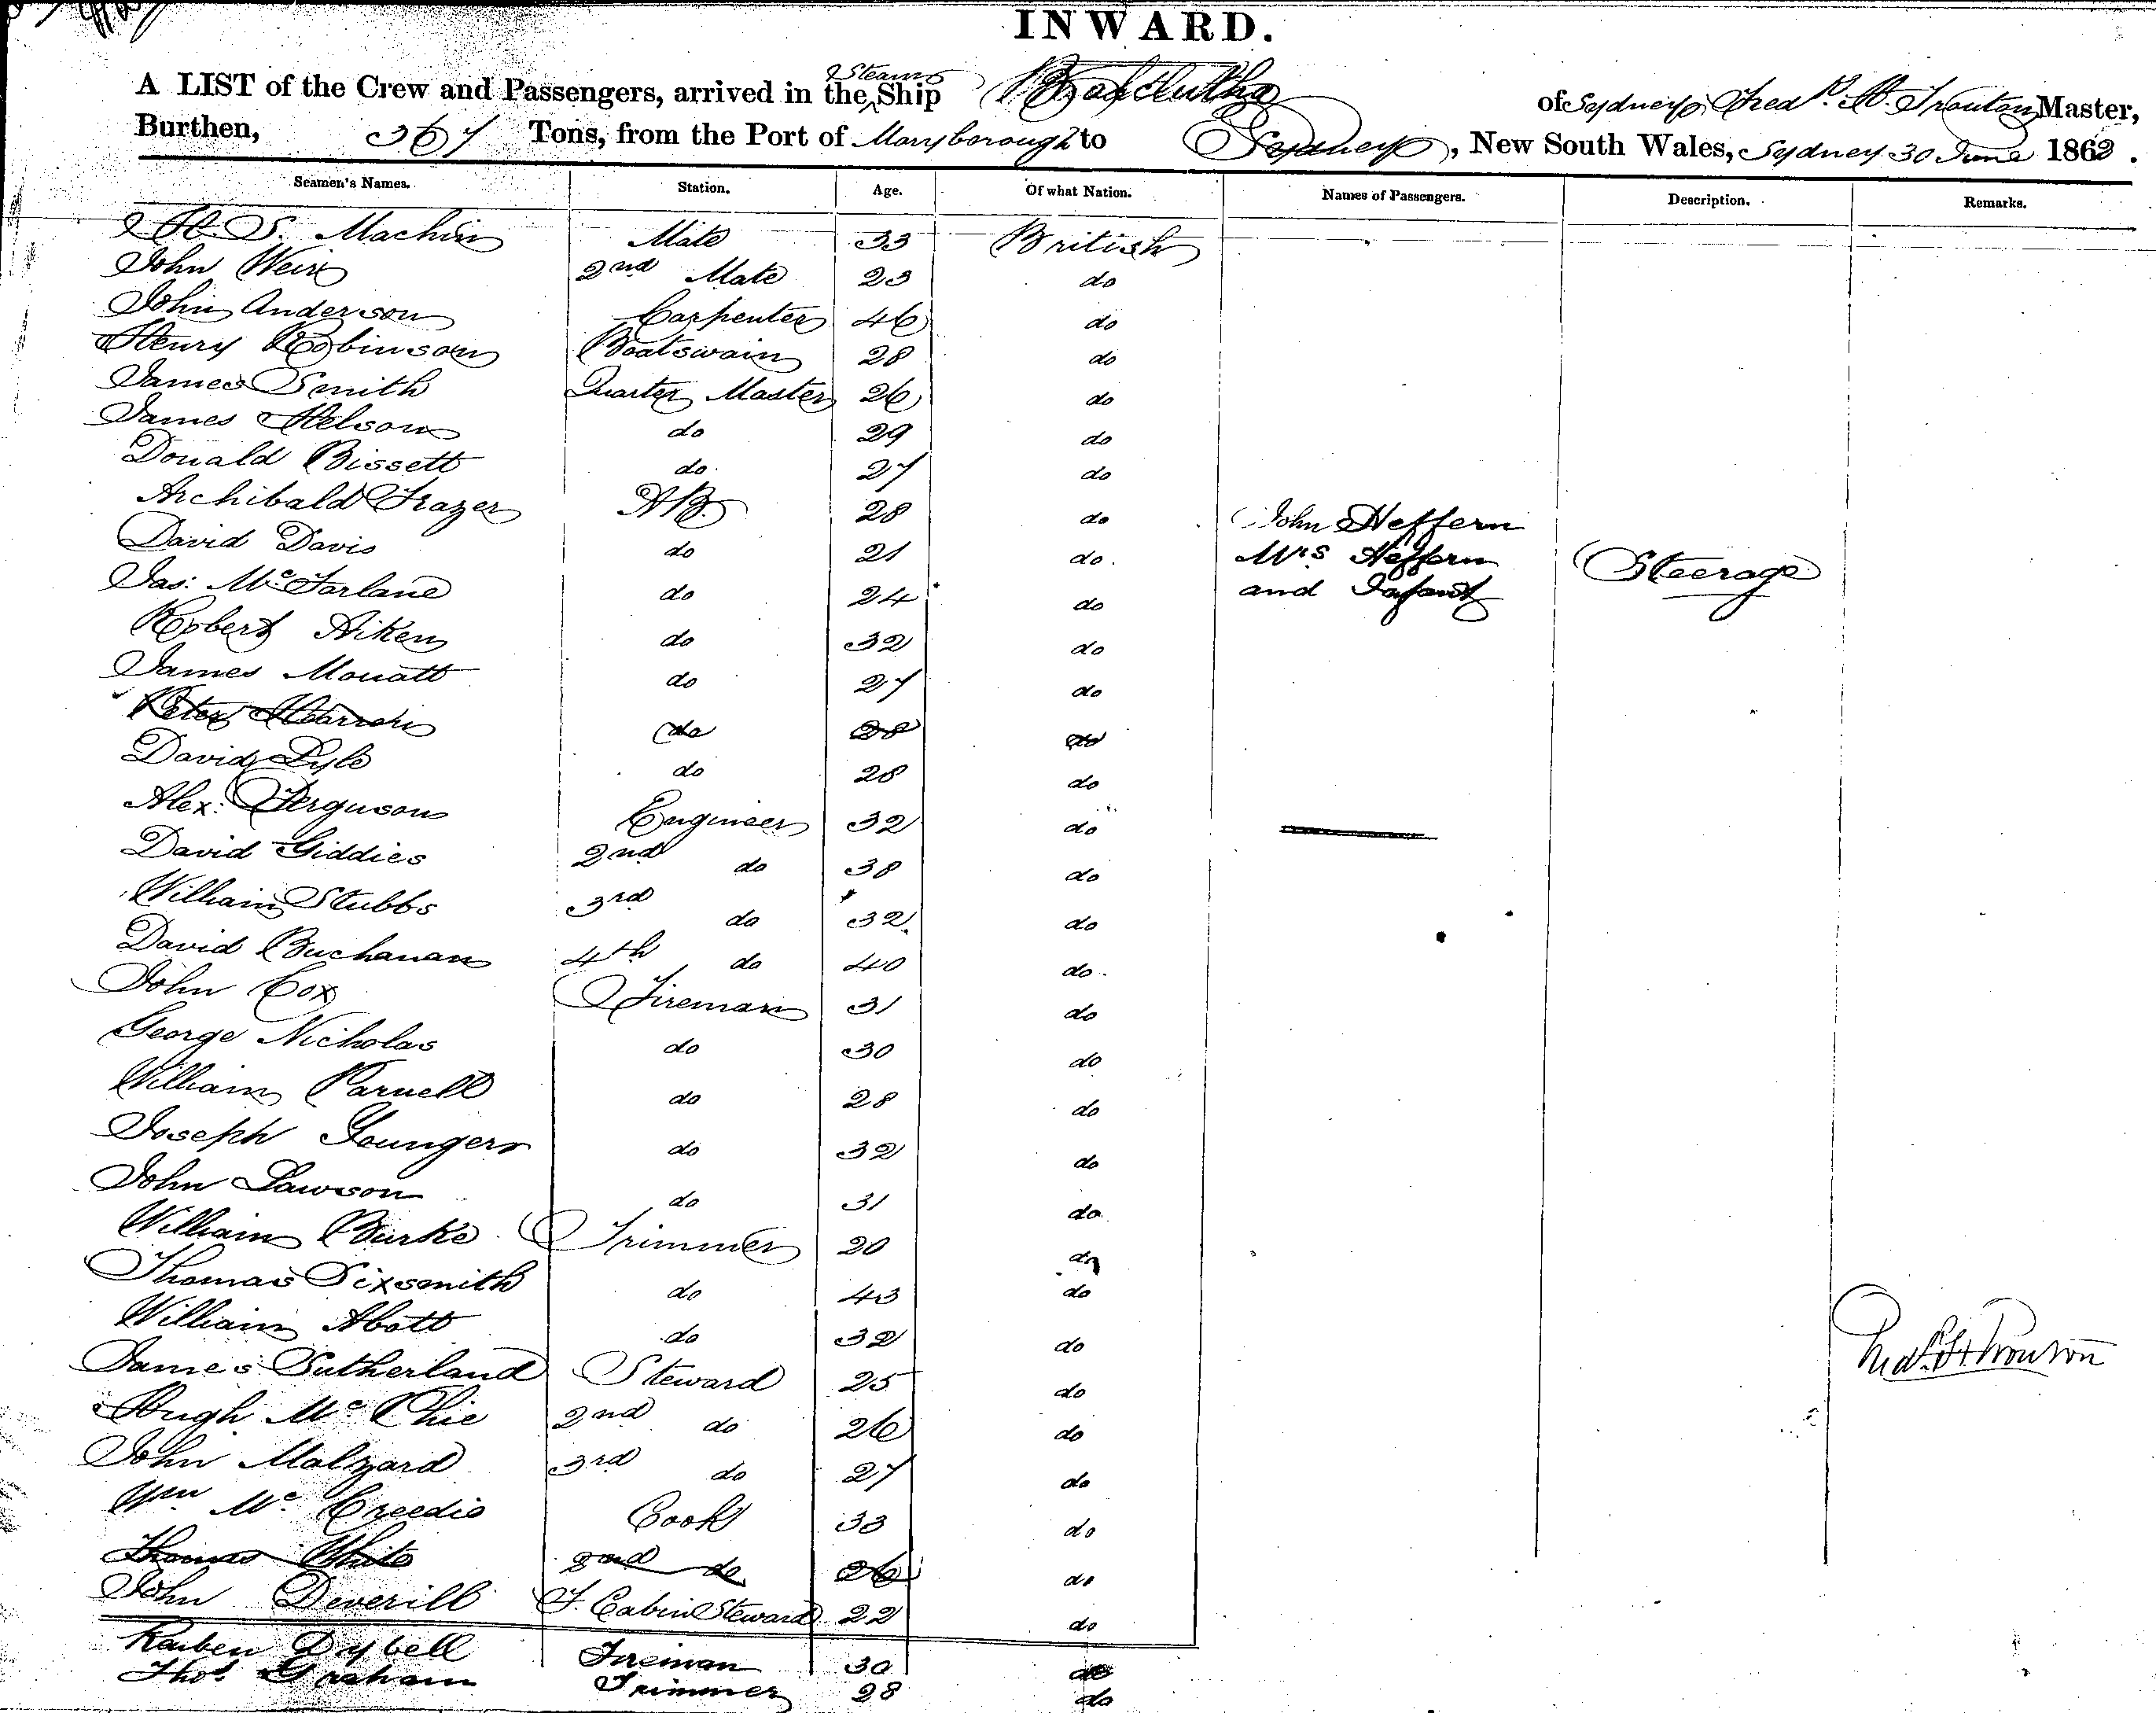 INWARD.
A LIST of the Crew and Passengers, arrived in the Steam Ship Balclutha of Sydney Fredk. H. Trouton Master,
Burthen, 367 Tons, from the Port of Maryborough to Sydney, New South Wales, Sydney 30 June 1862.
Seamen's Names. Station. Age. Of what Nation. Names of Passengers. Description. Remarks.
H. S. Machin Mate 33 British
John Weir 2nd Mate 23 do
John Anderson Carpenter 46 do
Henry Robinson Boatswain 28 do
James Smith Quarter Master 26 do
James Nelson do 29 do
Donald Bissett do 27 do
Archibald Frazer AB 28 do John Heffern
David Davis do 21 do Mrs Heffern Steerage
Jas: McFarlane do 24 do and Infant
Robert Aiken do 32 do
James Mouatt do 27 do
Peter do 28 do
David Lyle do 28 do
Alex: Ferguson Engineer 32 do
David Giddies 2nd do 38 do
William Stubbs 3rd do 32 do
David Buchanan 4th do 40 do
John Cox Fireman 31 do
George Nicholas do 30 do
William Parnell do 28 do
Joseph Youngers do 32 do
John Lawson do 31 do
William Burke Trimmer 20 do
Thomas Sixsmith do 43 do
William Abott do 32 do
James Sutherland Steward 25 do Fredk. H. Trouton
Hugh McPhie 2nd do 26 do
John Malzard 3rd do 27 do
Wm McCreedie Cook 33 do
Thomas White 2nd do 26 do
John Deverill F. Cabin Steward 22 do
Reuben Dybell Fireman 30 do
Thos. Graham Trimmer 28 do